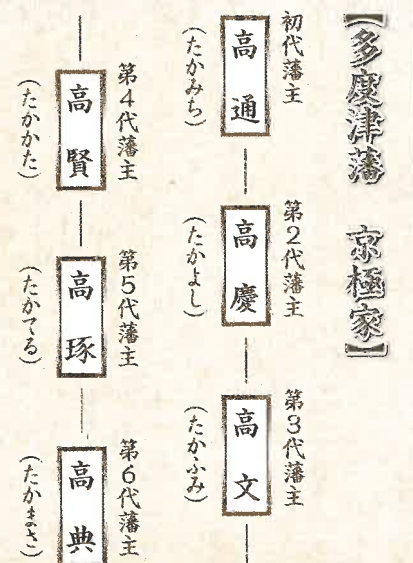 【多度津藩 京極家】
初代藩主
高通
(たかみち)
第2代藩主
高慶
(たかよし)
第3代藩主
高文
(たかふみ)
第4代藩主
高賢
(たかかた)
第5代藩主
高琢
(たかてる)
第6代藩主
高典
(たかまさ)